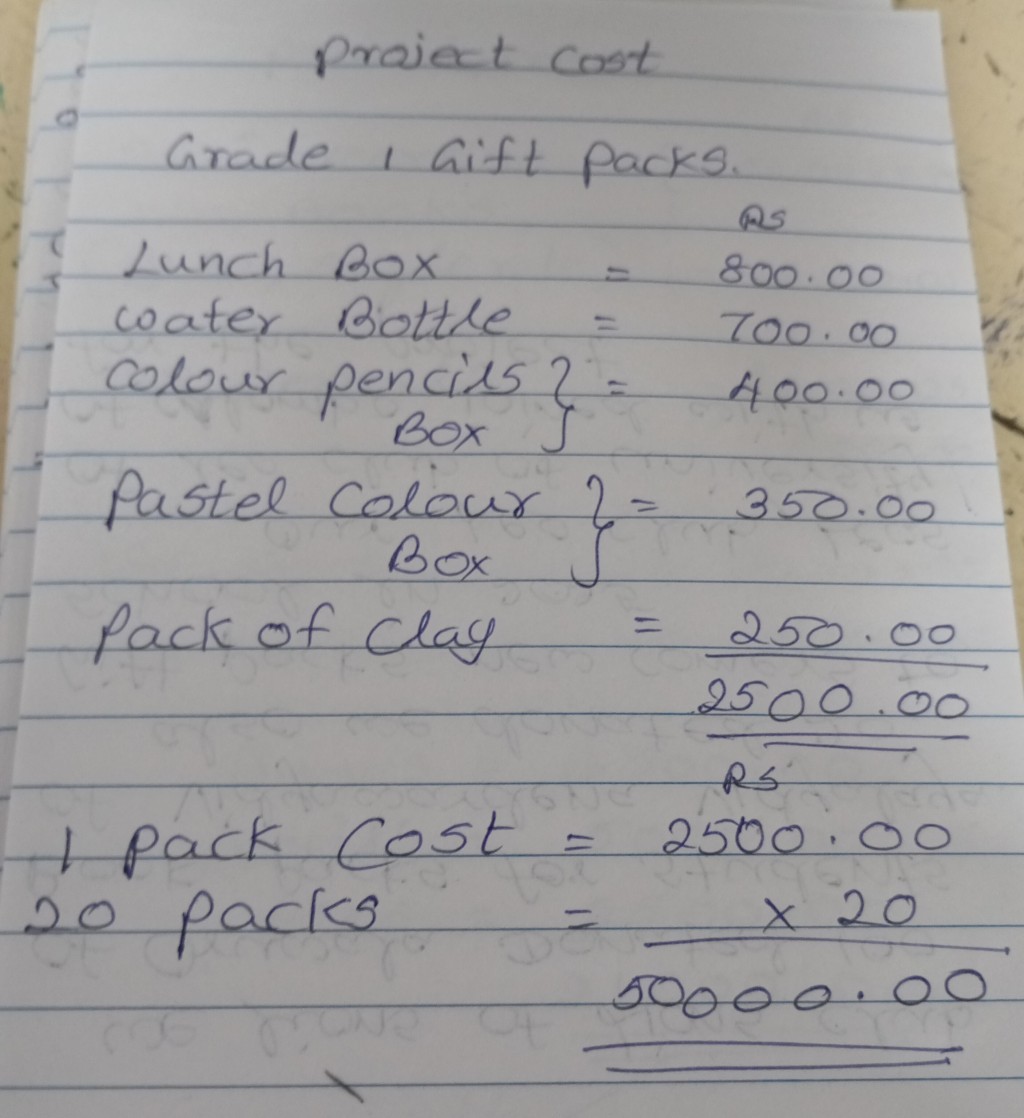 Project Cost
Grade 1 Gift Packs.
RS
Lunch Box = 800.00
Water Bottle = 700.00
Colour pencils } = 400.00
Box
Pastel Colour } = 350.00
Box
Pack of Clay = 250.00
2500.00
RS
1 Pack Cost = 2500.00
20 Packs = x 20
50000.00